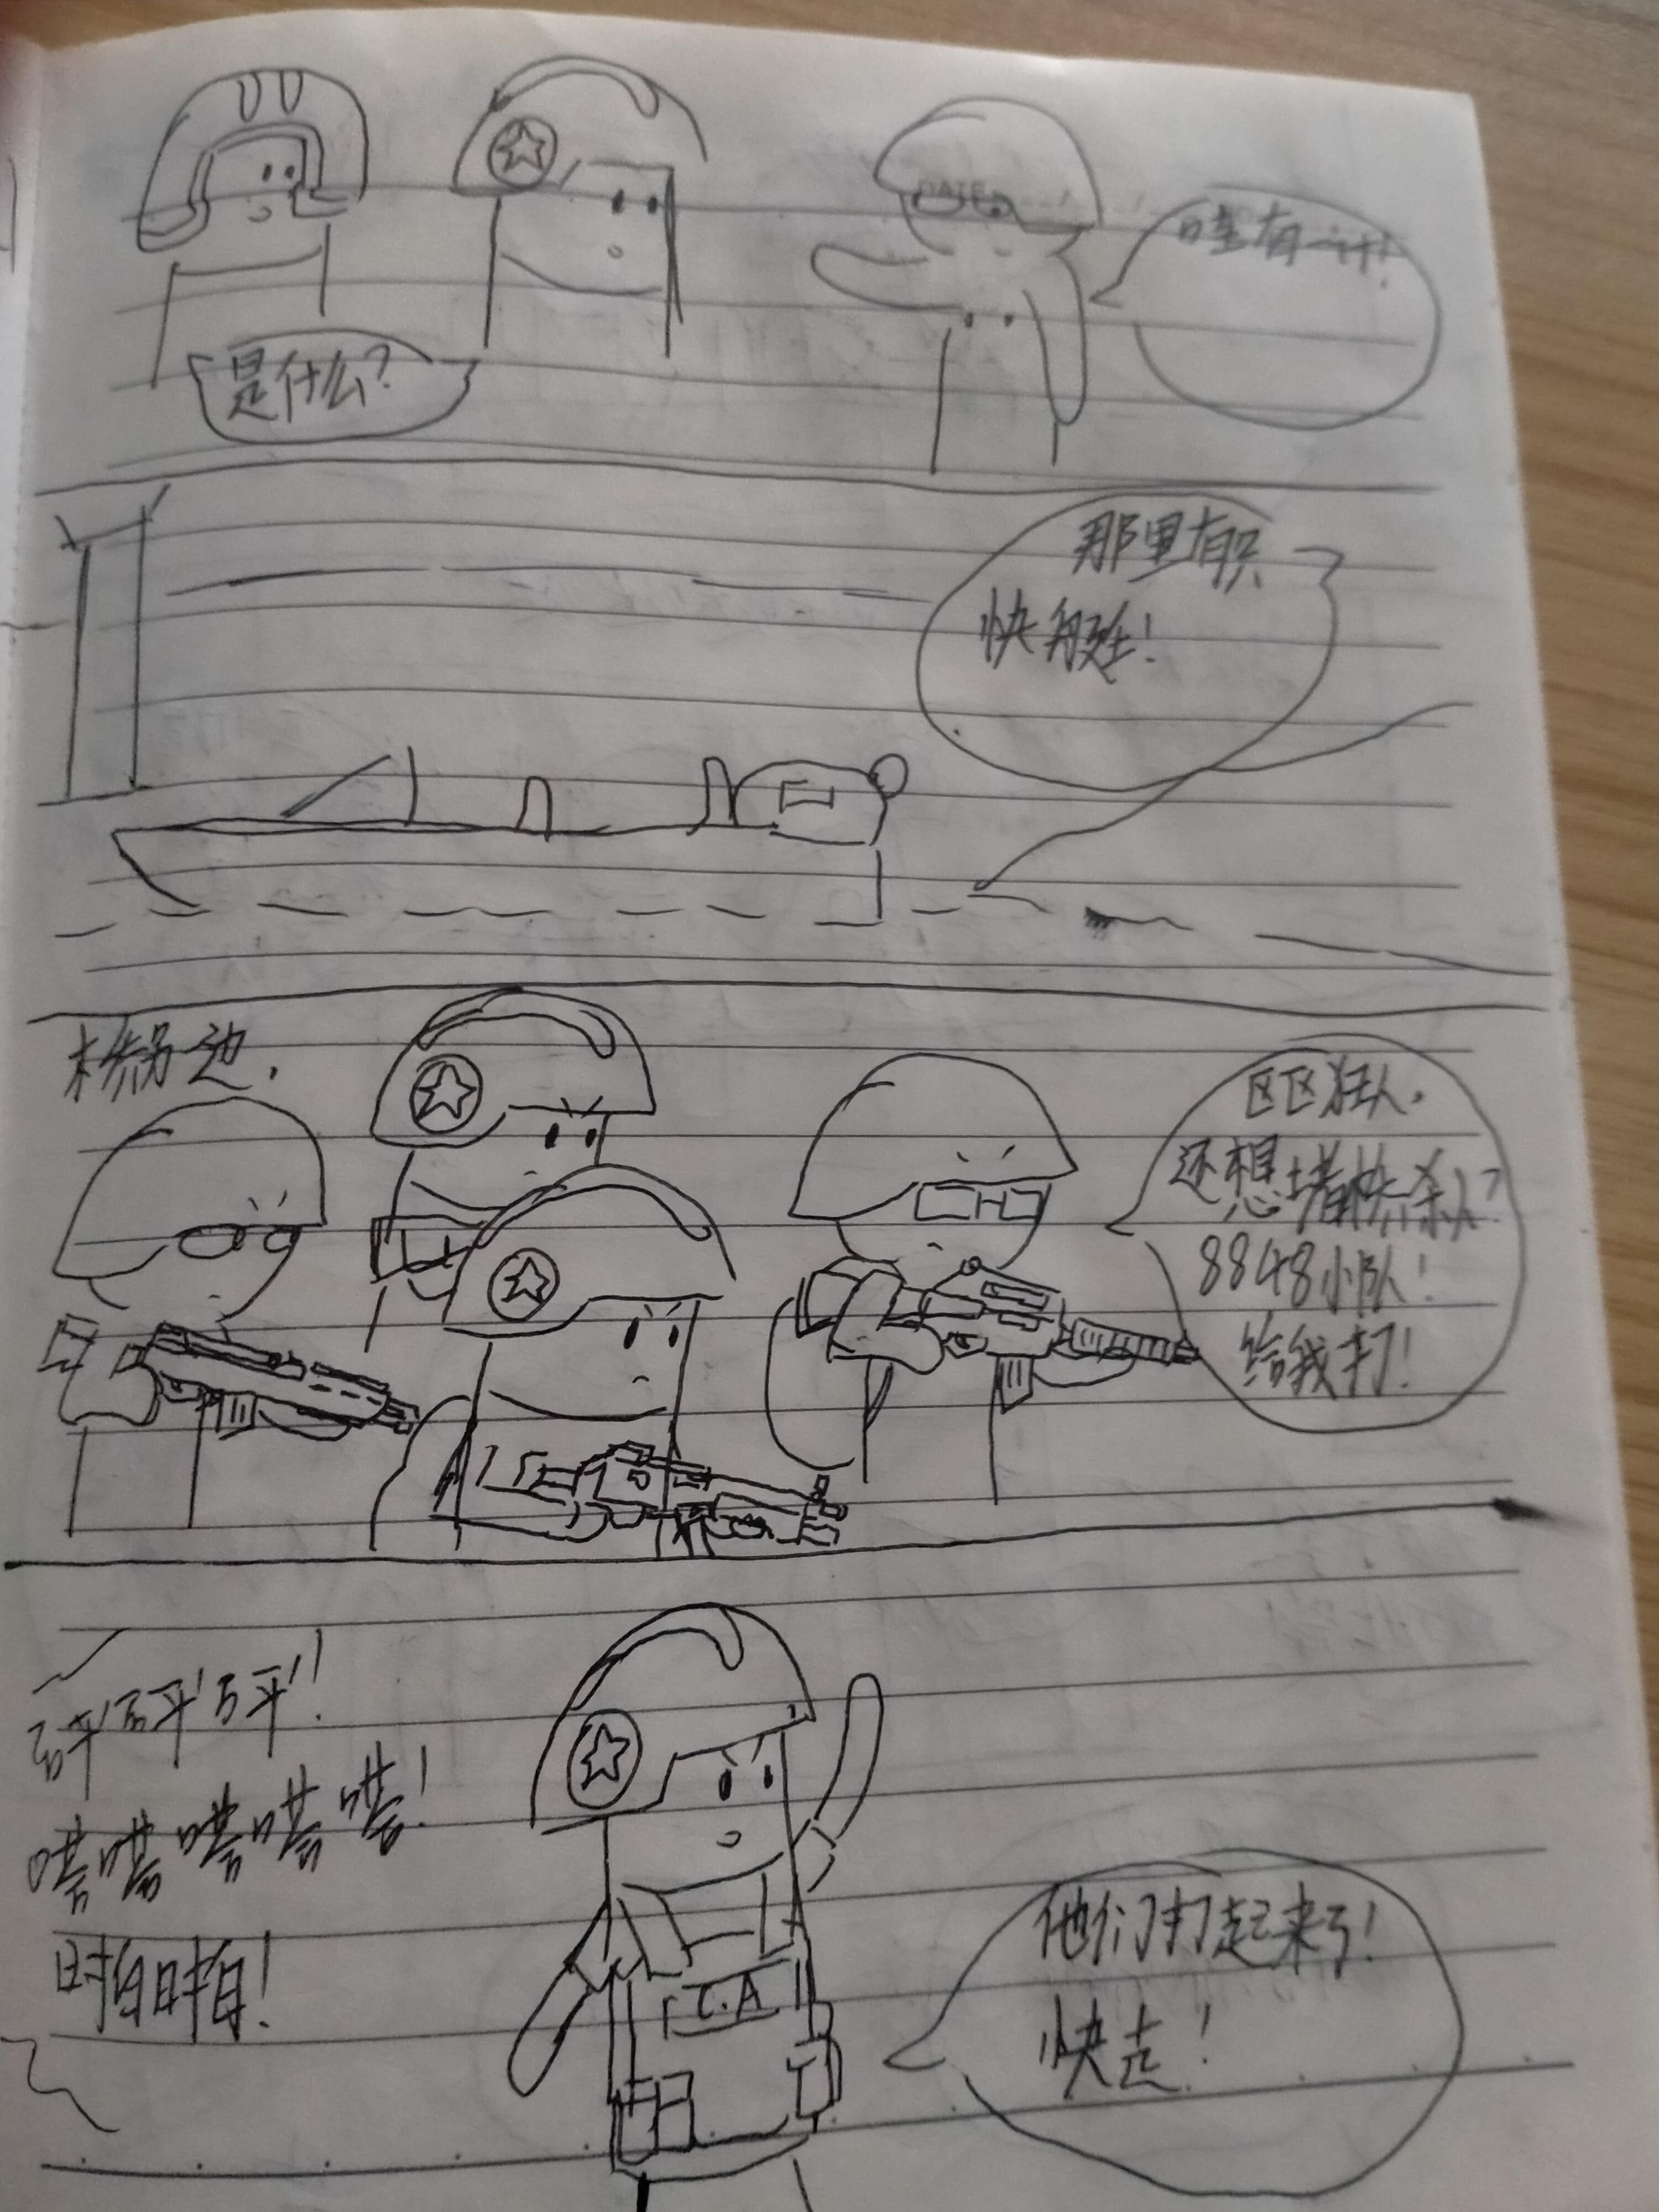 DATE
哇有一计!
是什么?
那里有只
快艇!
另一边.
区区狂人.
还想堵杀人?
8848小队!
给我打!
砰砰砰!
嗒嗒嗒嗒嗒!
啪啪!
I.A
他们打起来了!
快走!